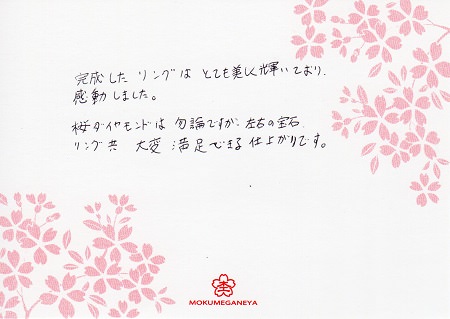 完成した リングは とても美しく輝いており、
感動しました。
桜ダイヤモンドは 勿論ですが、左右の宝石
リング共 大変 満足できる 仕上がりです。
MOKUMEGANEYA